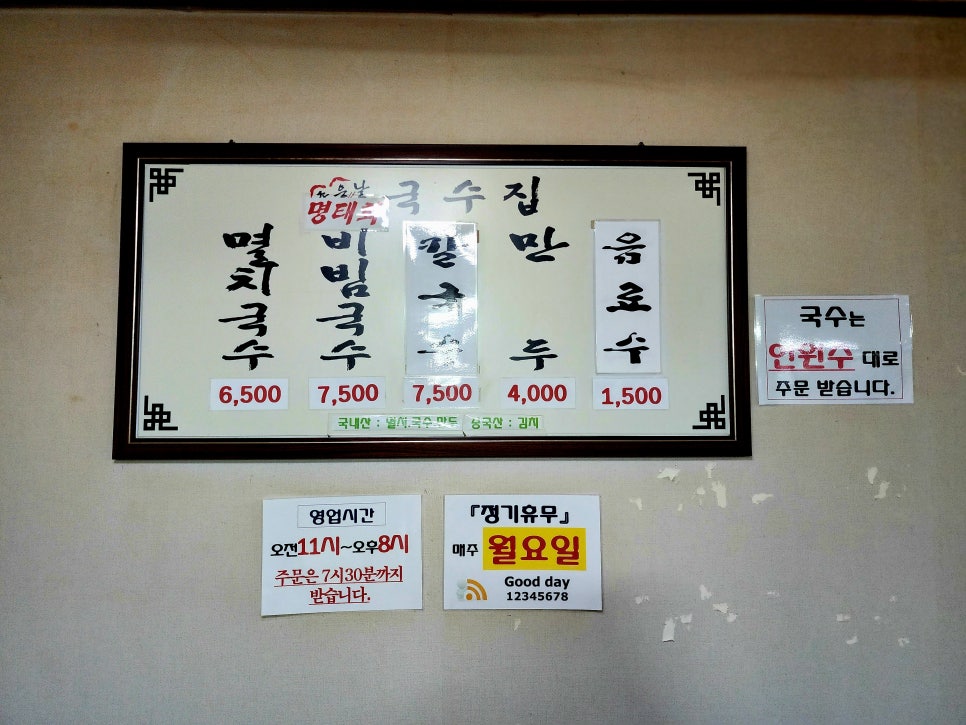 국수집
명태
멸치국수
비빔국수
팥국수
만두
음료수
6,500
7,500
7,500
4,000
1,500
국내산 : 멸치.국수.만두 중국산 : 김치
국수는
인원수 대로
주문 받습니다.
영업시간
오전11시~오후8시
주문은 7시30분까지
받습니다.
『정기휴무』
매주 월요일
Good day
12345678